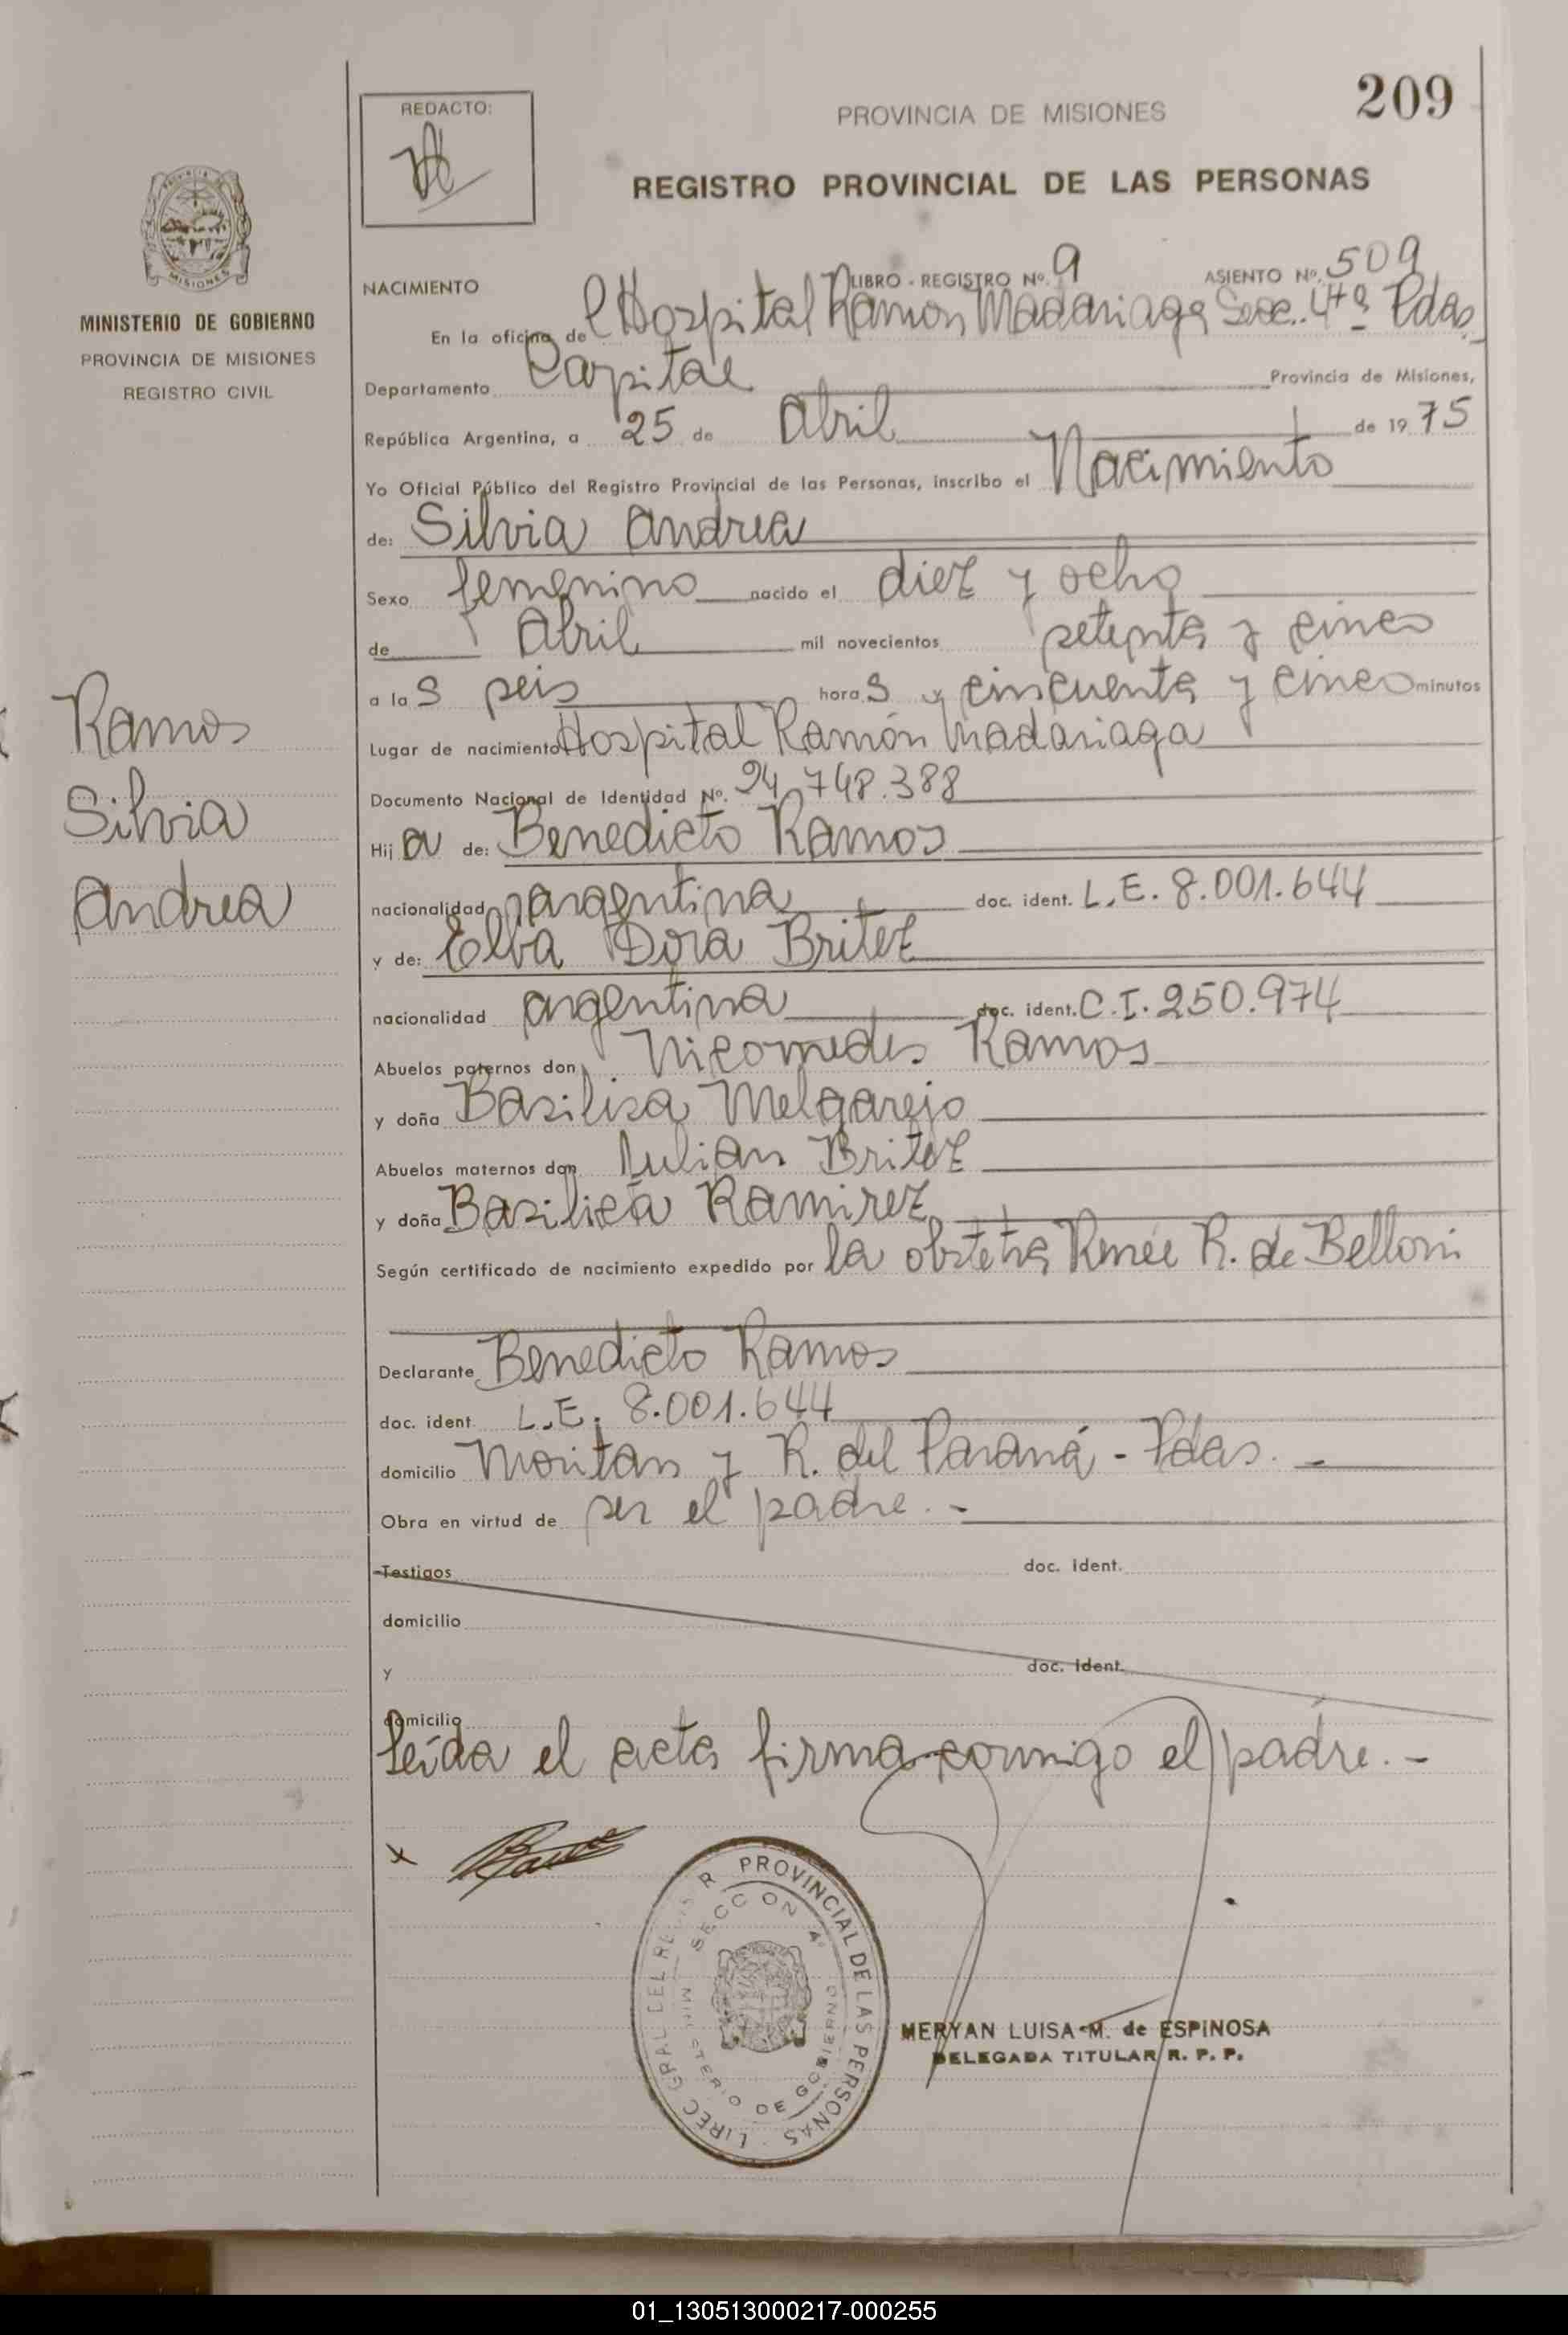 209
REDACTO:
PROVINCIA DE MISIONES
REGISTRO PROVINCIAL DE LAS PERSONAS
MINISTERIO DE GOBIERNO
PROVINCIA DE MISIONES
REGISTRO CIVIL
NACIMIENTO LIBRO - REGISTRO Nº. 9 ASIENTO Nº. 509
En la oficina de l Hospital Ramon Madariaga Secc. 4ta Pdas.
Departamento Capital Provincia de Misiones,
República Argentina, a 25 de Abril de 1975
Yo Oficial Público del Registro Provincial de las Personas, inscribo el Nacimiento
de: Silvia Andrea
Sexo femenino nacido el diez y ocho
de Abril mil novecientos setenta y cinco
a las seis horas y cincuenta y cinco minutos
Lugar de nacimiento Hospital Ramón Madariaga
Documento Nacional de Identidad Nº. 24.748.388
Hija de: Benedicto Ramos
nacionalidad argentina doc. ident. L.E. 8.001.644
y de: Elba Dora Britez
nacionalidad argentina doc. ident. C.I. 250.974
Abuelos paternos don Nicomedes Ramos
y doña Basilisa Melgarejo
Abuelos maternos don Julian Britez
y doña Basilica Ramirez
Según certificado de nacimiento expedido por la obstetra Renée R. de Belloni
Declarante Benedicto Ramos
doc. ident. L.E. 8.001.644
domicilio Moritan y R. del Paraná - Pdas. -
Obra en virtud de ser el padre. -
Testigos doc. ident.
domicilio
y doc. ident.
domicilio
Leída el acta firma conmigo el padre. -
Ramos
Silvia
Andrea
x
PROVINCIAL DE LAS PERSONAS
SECCION 4ª
MINISTERIO DE GOBIERNO
MERYAN LUISA M. de ESPINOSA
DELEGADA TITULAR R. P. P.
01_130513000217-000255